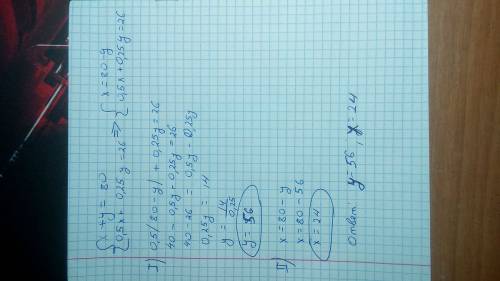 { x + y = 80
{ 0,5x + 0,25y = 26 => { x = 80 - y
{ 0,5x + 0,25y = 26
I) 0,5(80 - y) + 0,25y = 26
40 - 0,5y + 0,25y = 26
40 - 26 = 0,5y - 0,25y
0,25y = 14
y = 14/0,25
y = 56
II) x = 80 - y
x = 80 - 56
x = 24
Ответ y = 56, x = 24